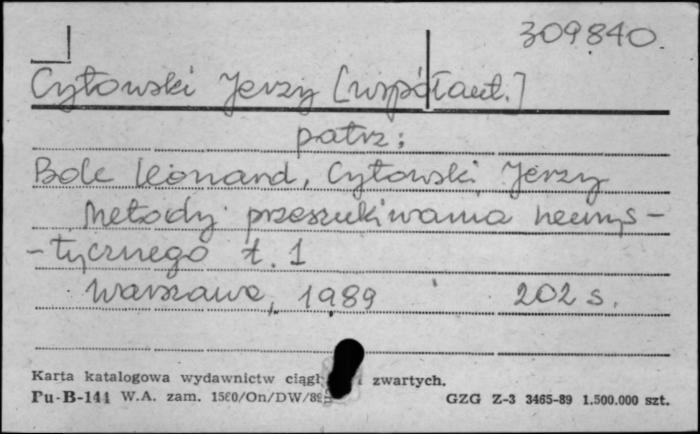 309840.
Cytowski Jerzy [współaut.]
patrz:
Bolc Leonard, Cytowski Jerzy
Metody przeszukiwania heurys-
-tycznego t. 1
Warszawa, 1989 202 s.
Karta katalogowa wydawnictw ciągł zwartych.
Pu-B-144 W.A. zam. 1560/On/DW/89 GZG Z-3 3465-89 1.500.000 szt.